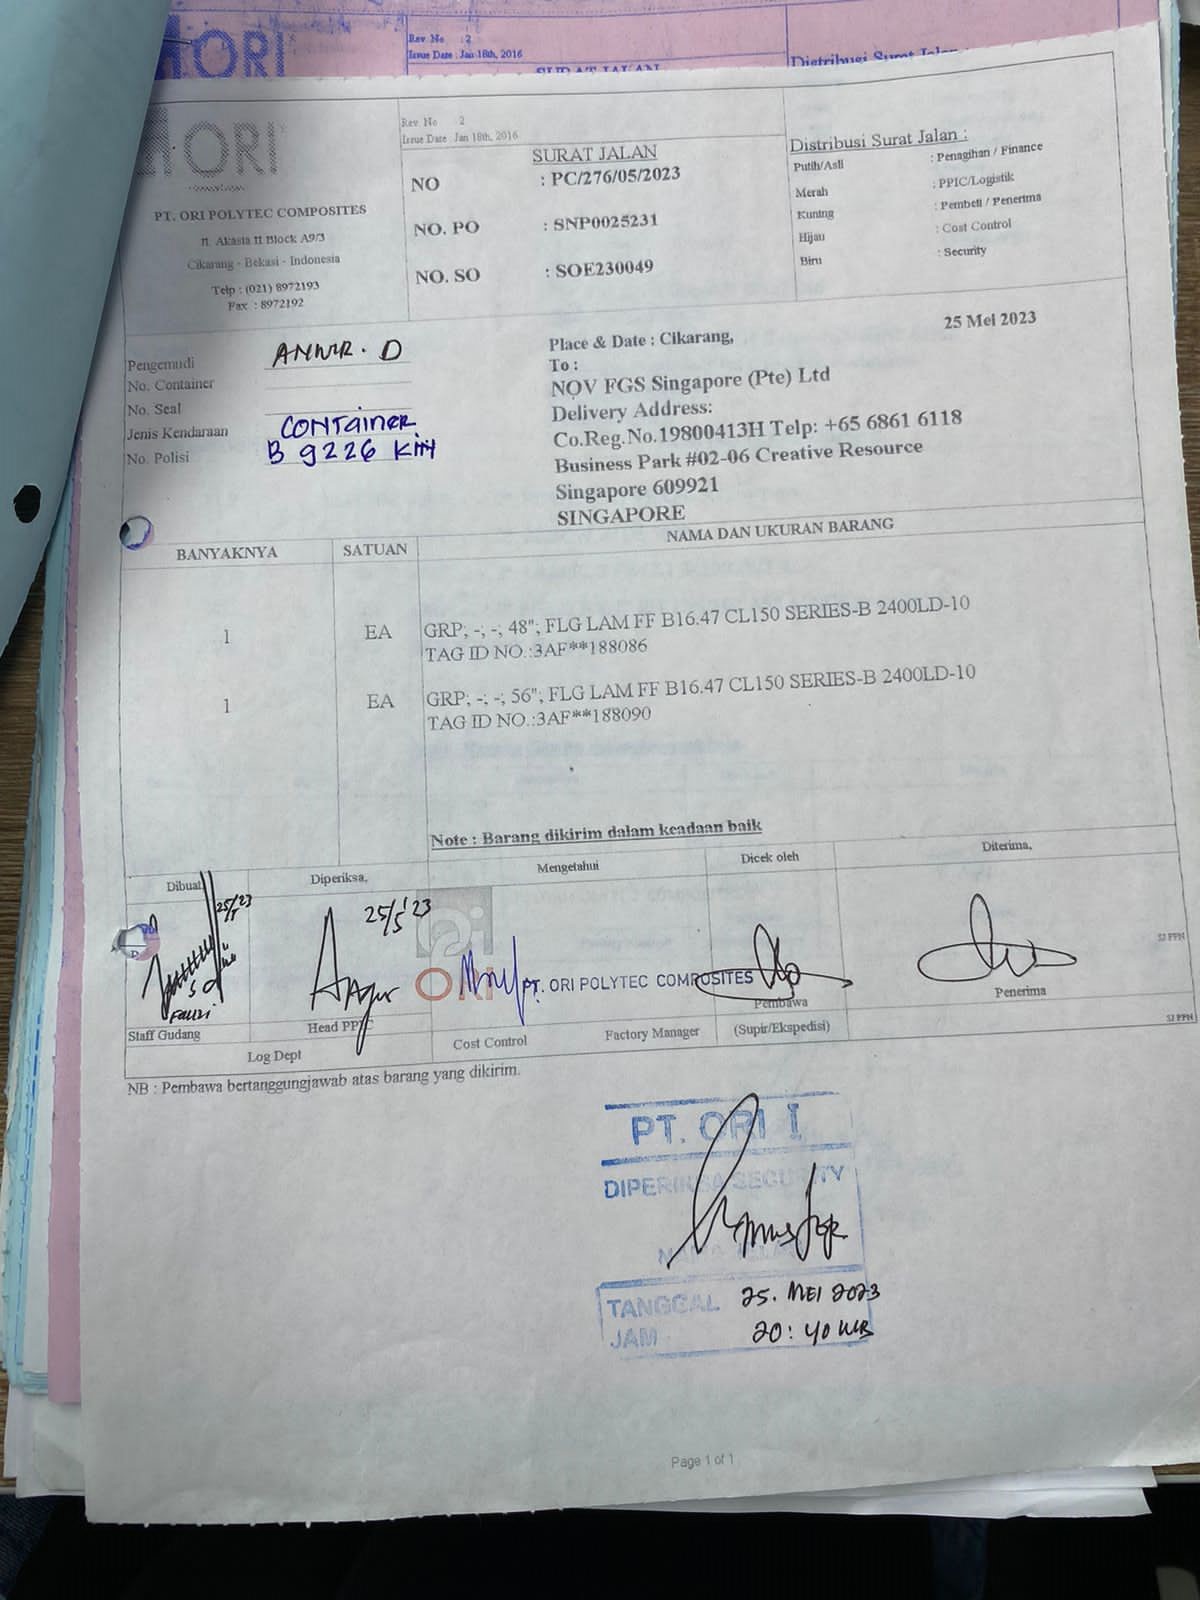 ORI
Rev No : 2
Issue Date : Jan 18th, 2016
SURAT JALAN
Distribusi Surat Jalan
ORI
PT. ORI POLYTEC COMPOSITES
Jl. Akasia II Block A9/3
Cikarang - Bekasi - Indonesia
Telp : (021) 8972193
Fax : 8972192
Rev No : 2
Issue Date : Jan 18th, 2016
SURAT JALAN
NO : PC/276/05/2023
NO. PO : SNP0025231
NO. SO : SOE230049
Distribusi Surat Jalan :
Putih/Asli : Penagihan / Finance
Merah : PPIC/Logistik
Kuning : Pembeli / Penerima
Hijau : Cost Control
Biru : Security
Pengemudi ANWR. D
No. Container
No. Seal
Jenis Kendaraan CONTAINER
No. Polisi B 9226
Place & Date : Cikarang, 25 Mei 2023
To :
NOV FGS Singapore (Pte) Ltd
Delivery Address:
Co.Reg.No.19800413H Telp: +65 6861 6118
Business Park #02-06 Creative Resource
Singapore 609921
SINGAPORE
BANYAKNYA SATUAN NAMA DAN UKURAN BARANG
1 EA GRP; -; -; 48"; FLG LAM FF B16.47 CL150 SERIES-B 2400LD-10
TAG ID NO.:3AF**188086
1 EA GRP; -; -; 56"; FLG LAM FF B16.47 CL150 SERIES-B 2400LD-10
TAG ID NO.:3AF**188090
Note : Barang dikirim dalam keadaan baik
Dibuat Diperiksa, Mengetahui Dicek oleh Diterima,
25/5'23 25/5'23
ORI PT. ORI POLYTEC COMPOSITES
Fauzi
Staff Gudang Head PPIC Pembawa Penerima
Log Dept Cost Control Factory Manager (Supir/Ekspedisi)
SJ PPN
SJ PPN
NB : Pembawa bertanggungjawab atas barang yang dikirim.
PT. ORI I
DIPERIKSA SECURITY
TANGGAL 25. MEI 2023
JAM 20:40 WIB
Page 1 of 1